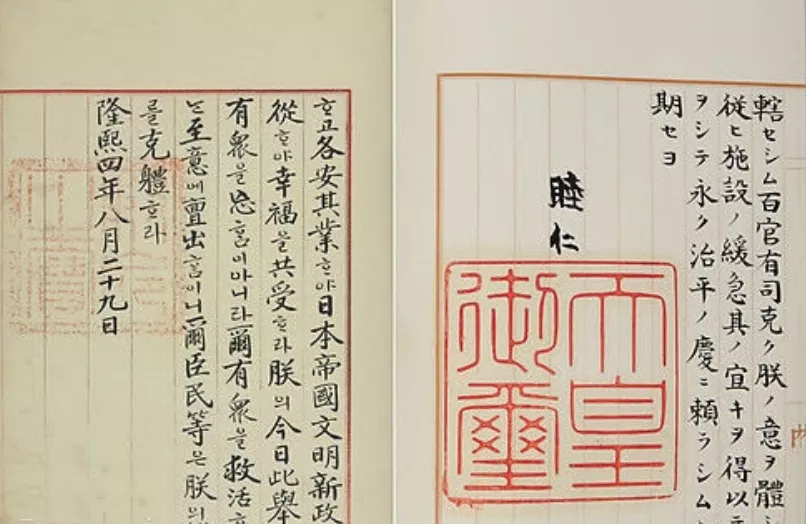 轄セシム百官有司克ク朕ノ意ヲ體シ
從ヒ施設ノ緩急其ノ宜キヲ得以テ
ヲシテ永ク治平ノ慶ニ頼ラシム
期セヨ
睦仁
天皇
御璽
ᄒᆞ고各安其業ᄒᆞ야日本帝國文明新政
從ᄒᆞ야幸福을共受ᄒᆞ라朕의今日此擧
有衆을忘ᄒᆞᆷ이아니라爾有衆을救活
는至意에亶出ᄒᆞᆷ이니爾臣民等은朕의
를克體ᄒᆞ라
隆熙四年八月二十九日